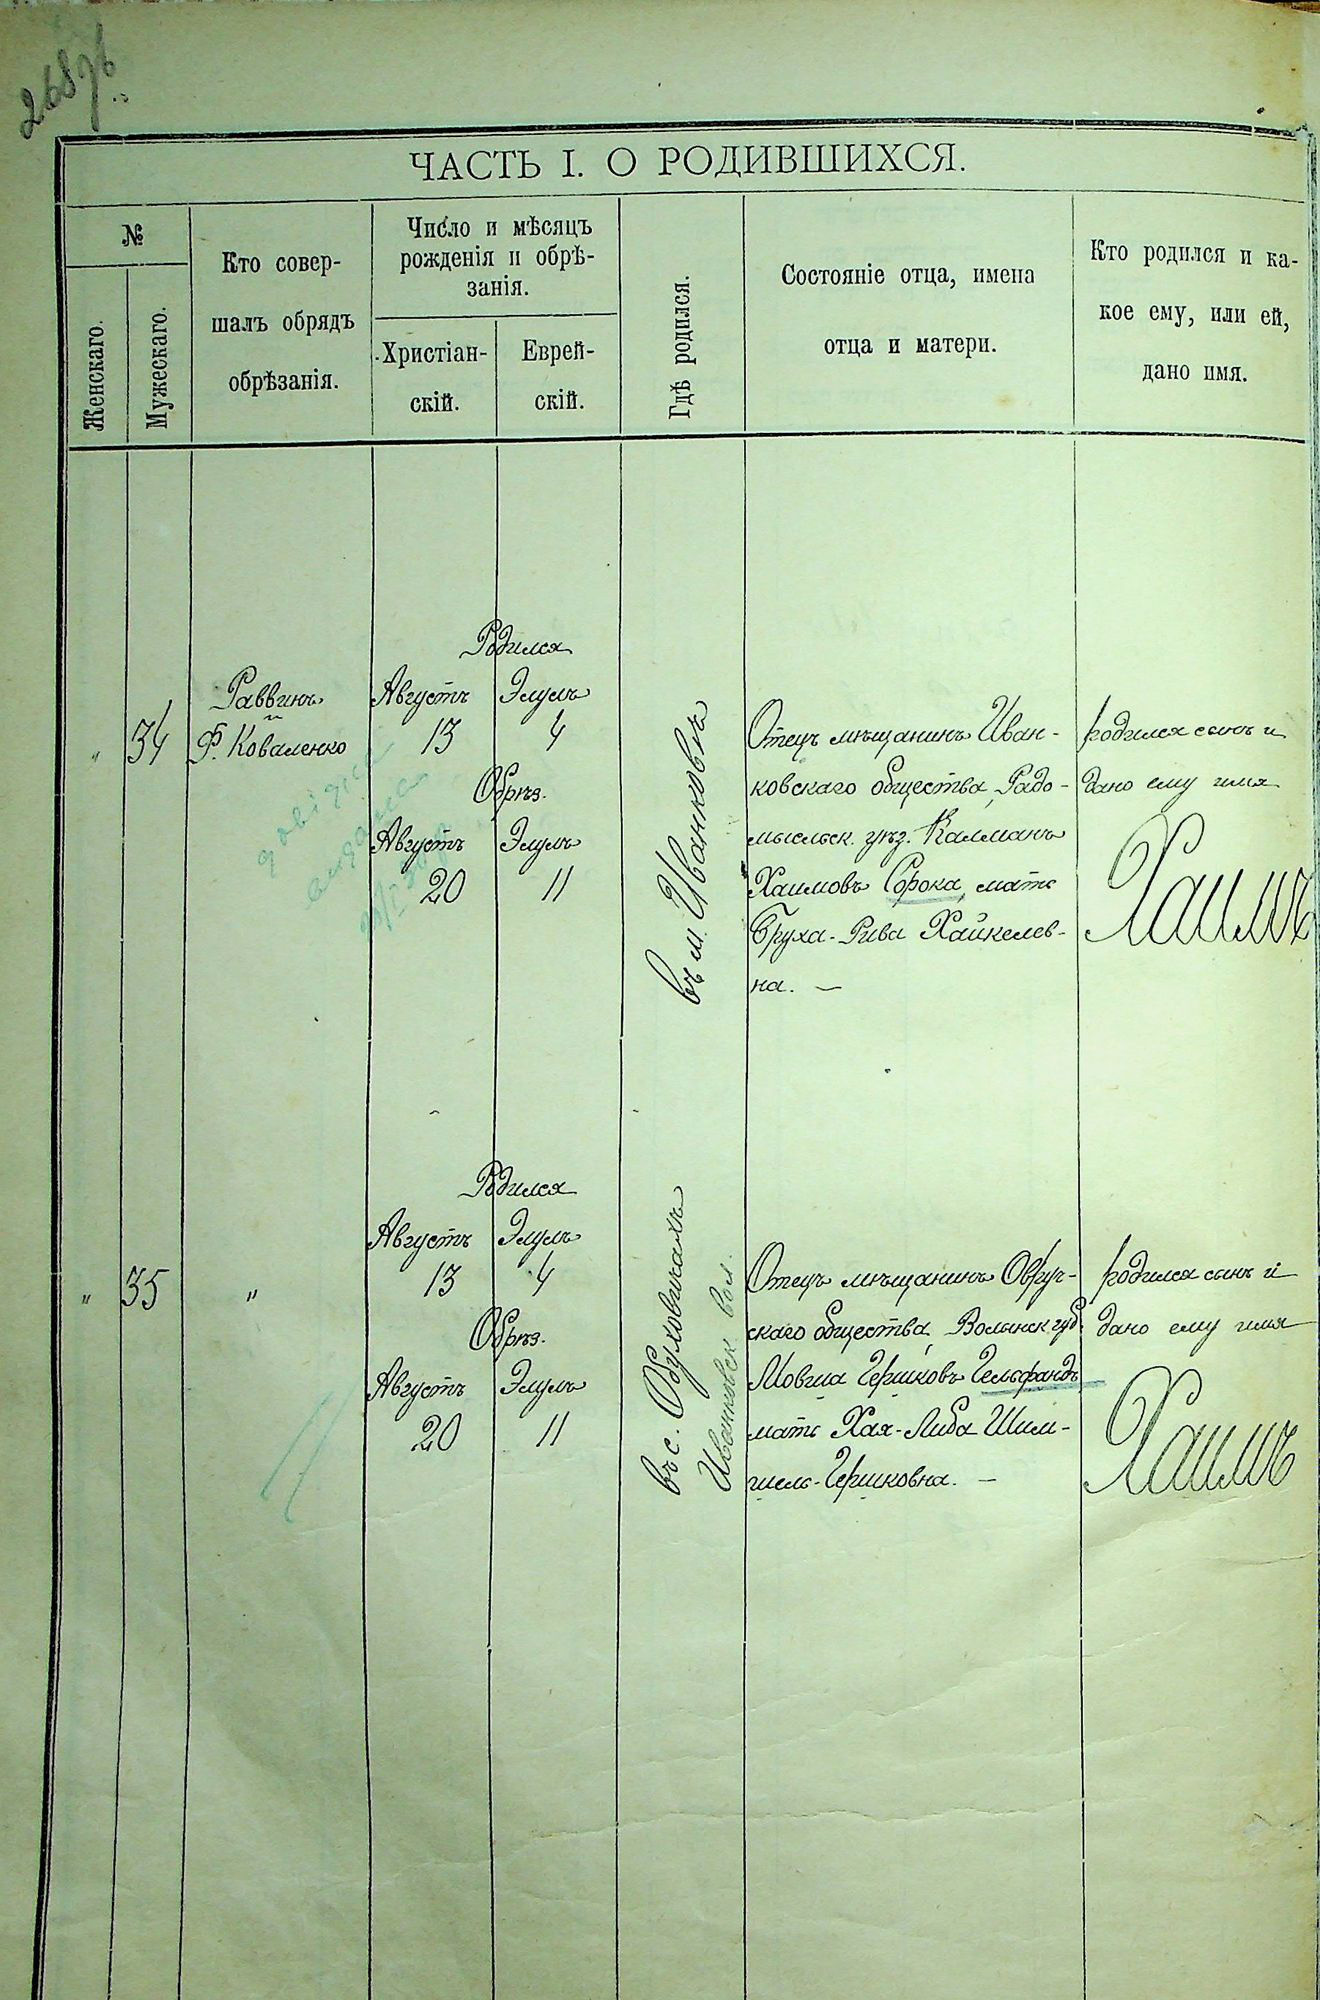 268 об
ЧАСТЬ I. О РОДИВШИХСЯ.
№
Женскаго.
Мужескаго.
Кто совер-
шалъ обрядъ
обрѣзанія.
Число и мѣсяцъ
рожденія и обрѣ-
занія.
Христіан-
скій.
Еврей-
скій.
Гдѣ родился.
Состояніе отца, имена
отца и матери.
Кто родился и ка-
кое ему, или ей,
дано имя.
"
34
Раввинъ
и
Ф. Коваленко
Родился
Августъ Элулъ
13 4
Обрѣз.
Августъ Элулъ
20 11
въ м. Иванковѣ
Отецъ мѣщанинъ Иван-
ковскаго общества, Радо-
мысльск. уѣз. Калманъ
Хаимовъ Сорока, мать
Бруха-Рива Хайкелев-
на. —
родился сынъ и
дано ему имя
Хаимъ
"
35
"
Родился
Августъ Элулъ
13 4
Обрѣз.
Августъ Элулъ
20 11
въ с. Обуховичахъ
Иванковск вол.
Отецъ мѣщанинъ Овруч-
скаго общества, Волынск губ.
Мовша Гершковъ Гельфандъ
мать Хая-Либа Шим-
шель-Гершковна. —
родился сынъ и
дано ему имя
Хаимъ